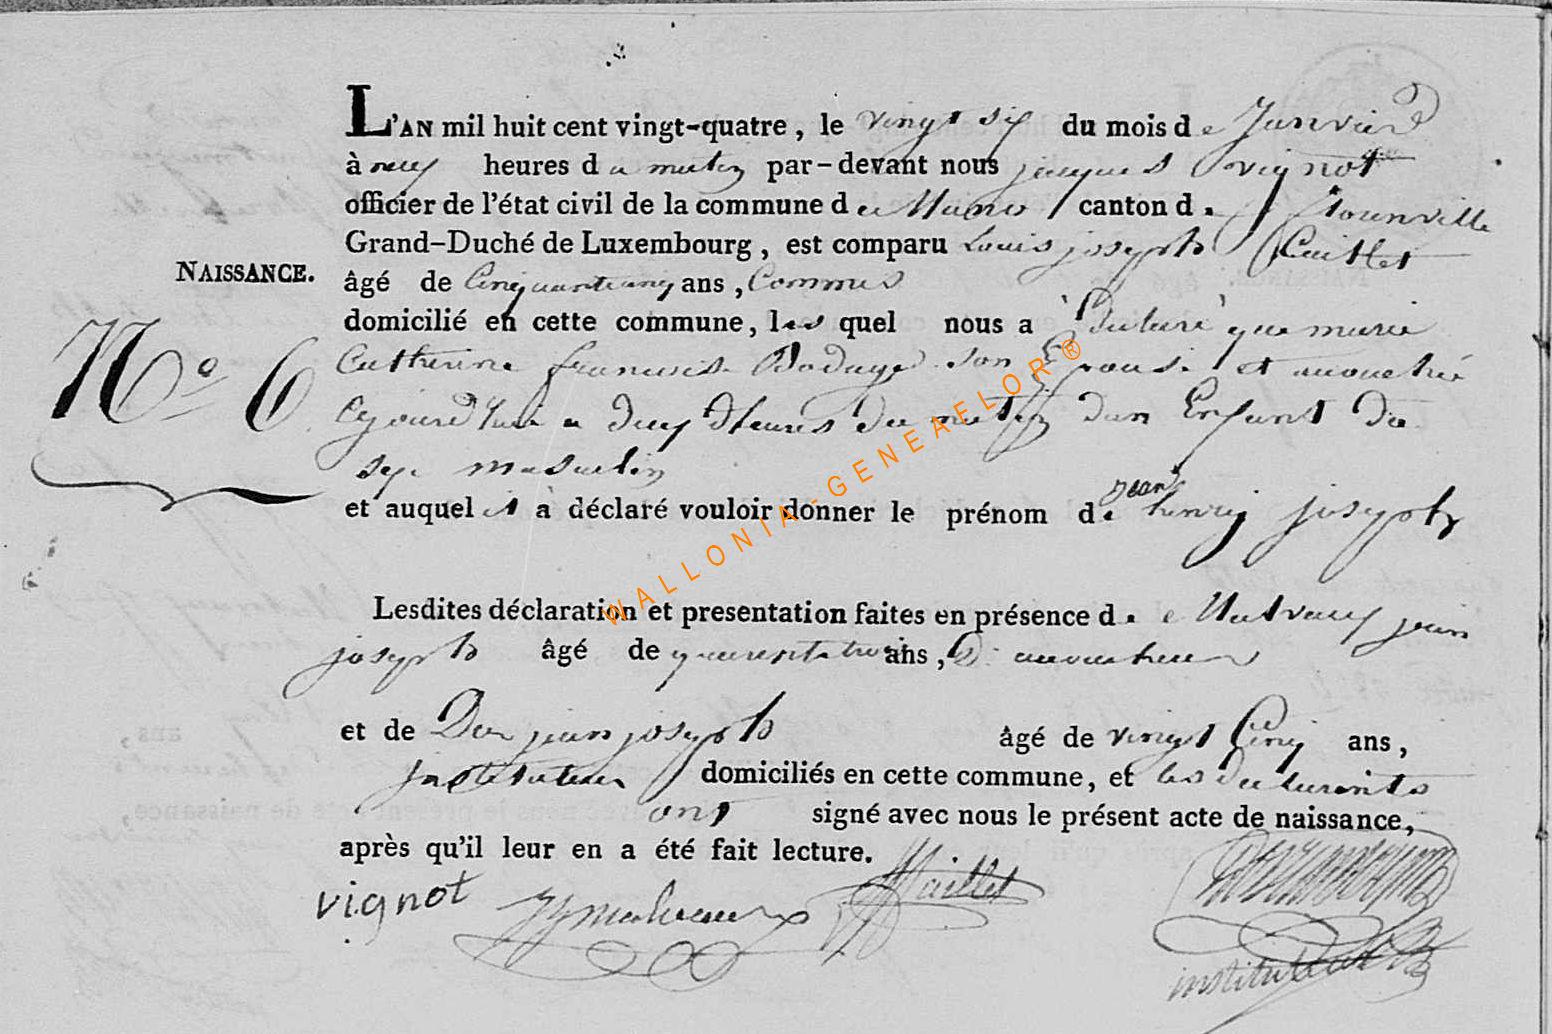 L'AN mil huit cent vingt-quatre, le vingt six du mois de Janvier
à neuf heures du matin par-devant nous jacques vignot
officier de l'état civil de la commune de Muno canton de florenville
Grand-Duché de Luxembourg, est comparu Louis joseph
NAISSANCE.
âgé de Cinquante cinq ans, Commis
domicilié en cette commune, lequel nous a Déclaré que marie
No 6
Catherine francoise son Epouse et accouchée
Cejourd'hui a deux heures du matin dun Enfant du
sexe masculin
et auquel il à déclaré vouloir donner le prénom de jean henry joseph
WALLONIA-GENEAELOR®
Lesdites déclaration et presentation faites en présence de Malvaux jean
joseph âgé de quarente trois ans,
et de jean joseph âgé de vingt Cinq ans,
jnstituteur domiciliés en cette commune, et les Déclarants
ont signé avec nous le présent acte de naissance,
après qu'il leur en a été fait lecture.
vignot JJ malvaux
instituteur